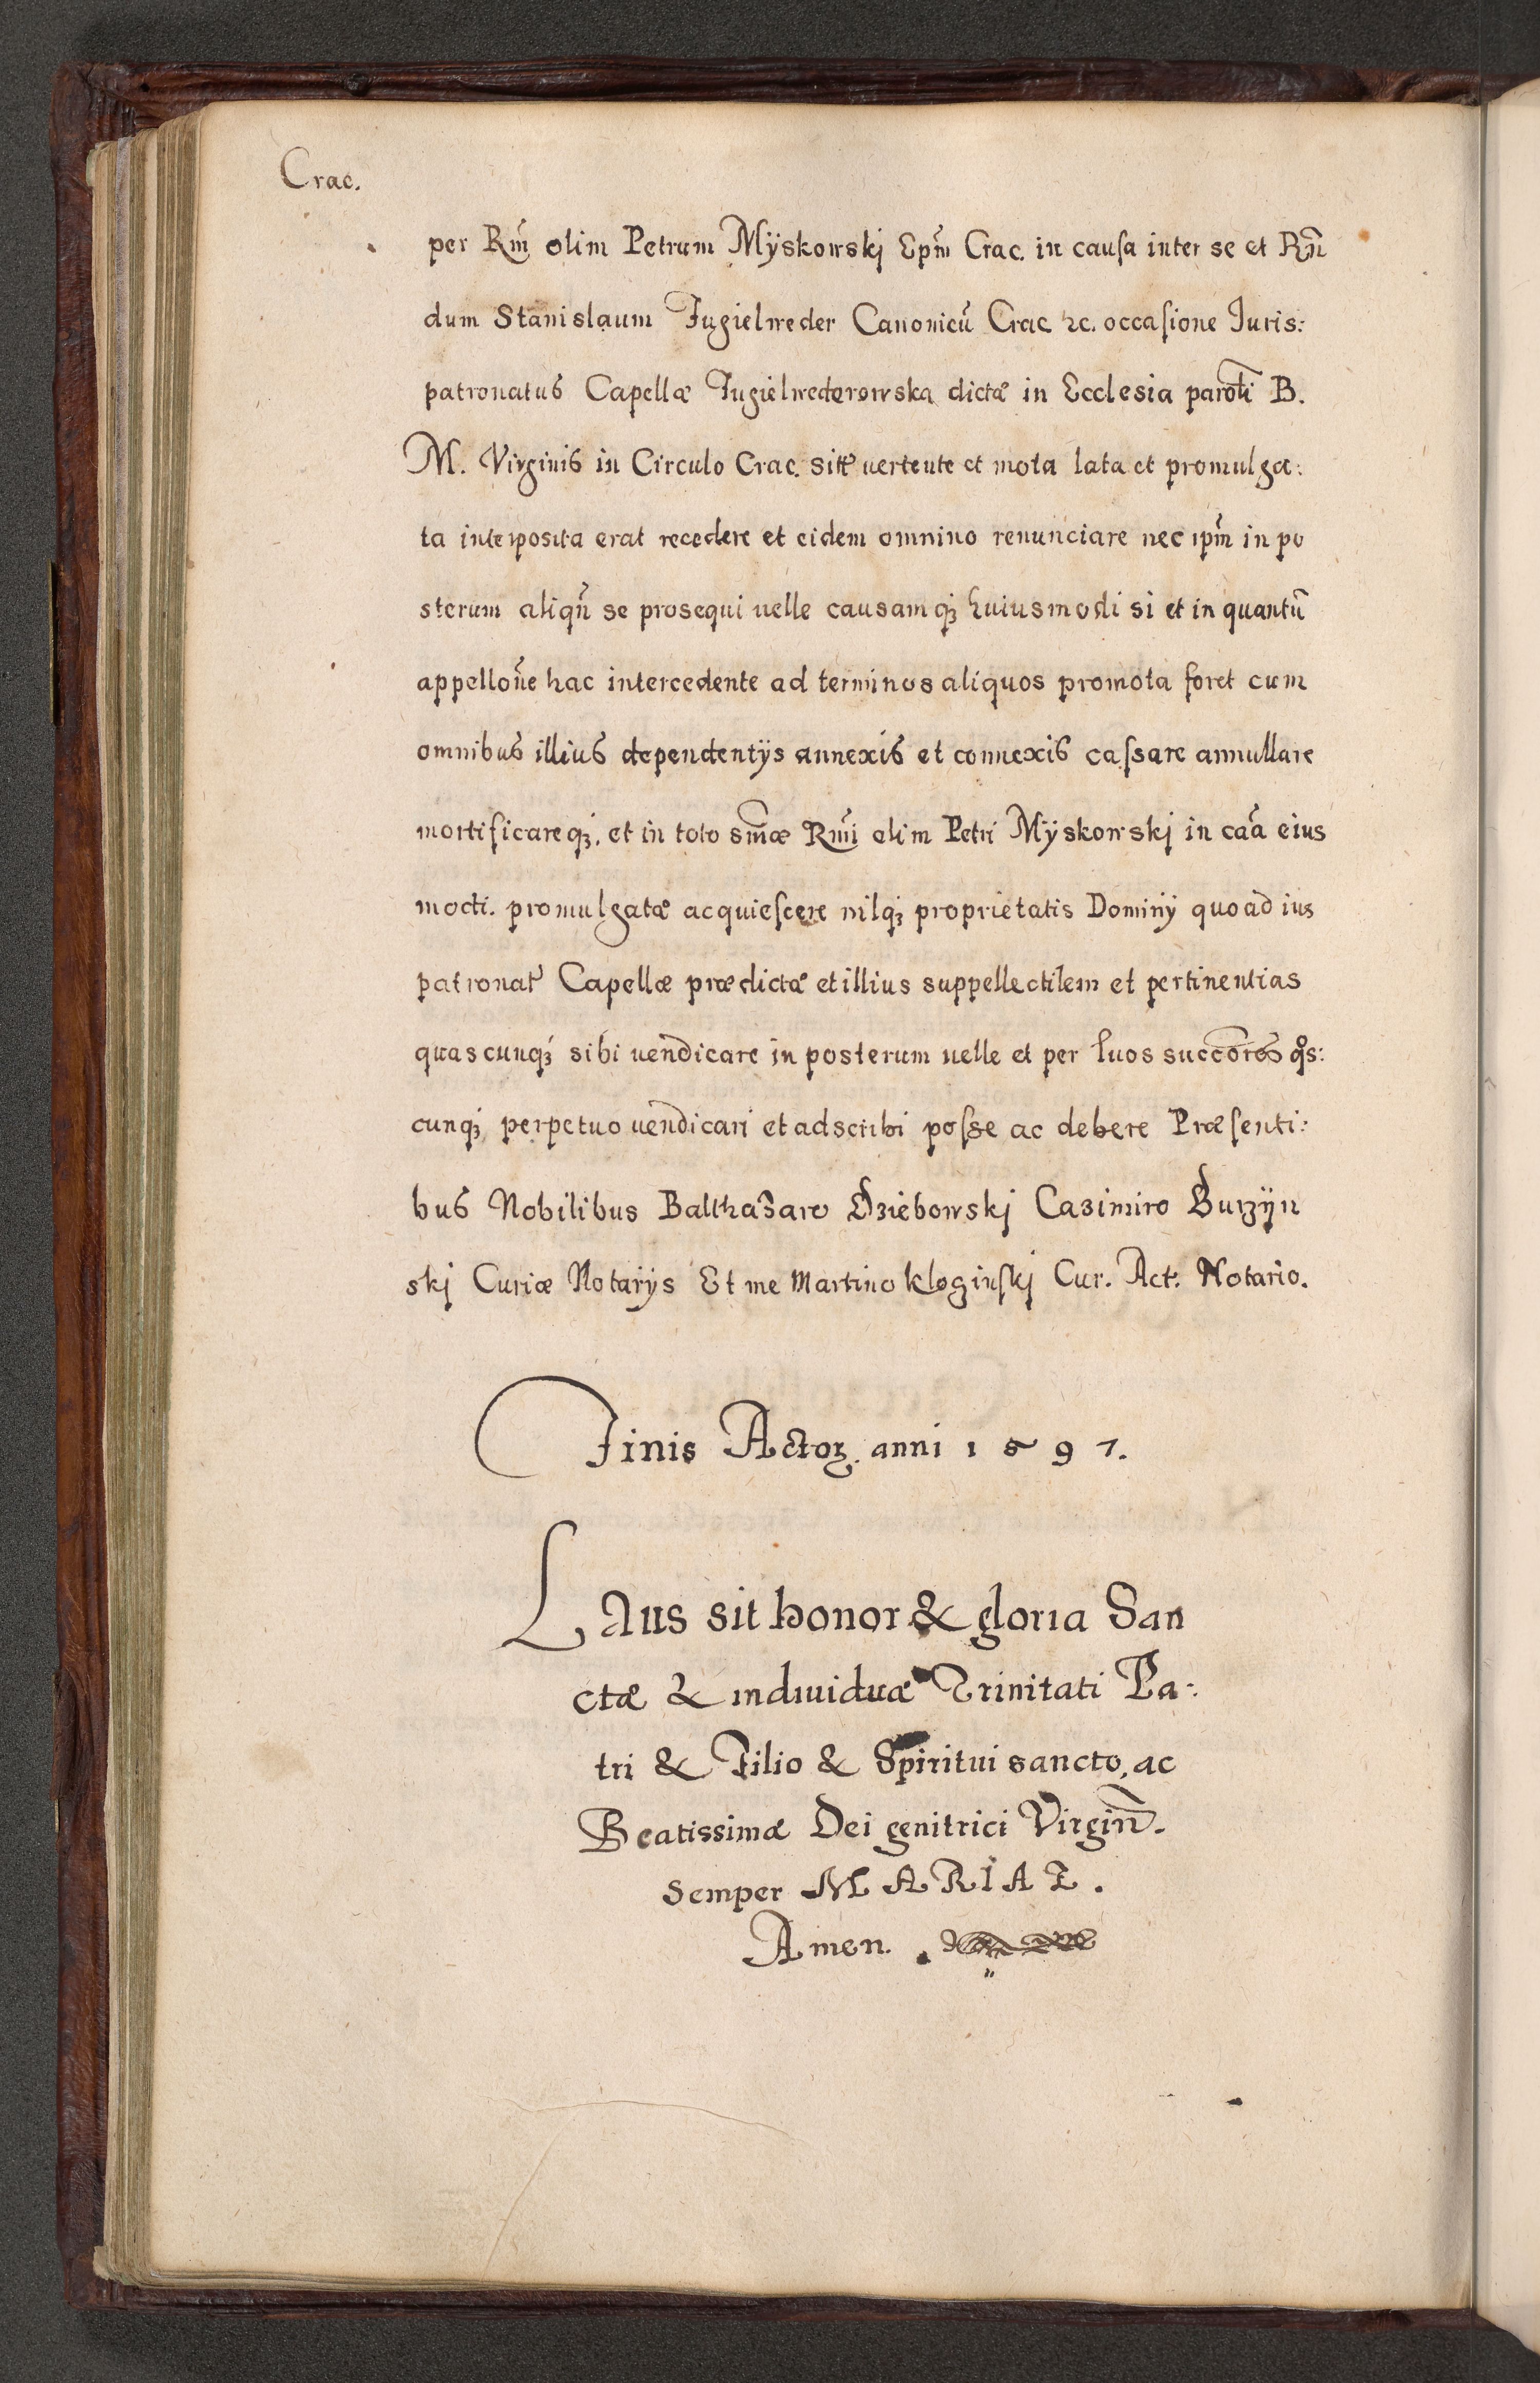 Crac.
per Rm̃ olim Petrum Mÿskowskj Epm̃ Crac. in causa inter se et Rñ
dum Stanislaum Fugielweder Canonicũ Crac. ꝛc. occasione Iuris:
patronatus Capellæ Fugielwederowska dictæ in Ecclesia parolĩ B.
M. Virginis in Circulo Crac. sitæ uertente et mota lata et promulga:
ta interposita erat recedere et eidem omnino renunciare nec ipm̃ in po
sterum aliqñ se prosequi uelle causamqꝫ huiusmodi si et in quantũ
appelloñe hac intercedente ad terminos aliquos promota foret cum
omnibus illius dependentÿs annexis et connexis cassare annullare
mortificareqꝫ. et in toto sm̃æ Rm̃i olim Petri Mÿskowskj in cãa eius
modi. promulgatæ acquiescere nilqꝫ proprietatis Dominÿ quoad ius
patronatꝰ Capellæ prædictæ et illius suppellectilem et pertinentias
quascunqꝫ sibi uendicare in posterum uelle et per suos succõres qͦs:
cunqꝫ perpetuo uendicari et adscribi posse ac debere Præsenti:
bus Nobilibus Balthasare Dziebowskj Casimiro Burzÿn
skj Curiæ Notarÿs Et me Martino Kloginskj Cur. Act. Notario.
Finis Actoꝝ. anni 1597.
Laus sit honor & gloria San
ctæ & indiuiduæ Trinitati Pa:
tri & Filio & Spiritui sancto, ac
Beatissimæ Dei genitrici Virgiñ.
Semper MARIAE.
Amen.